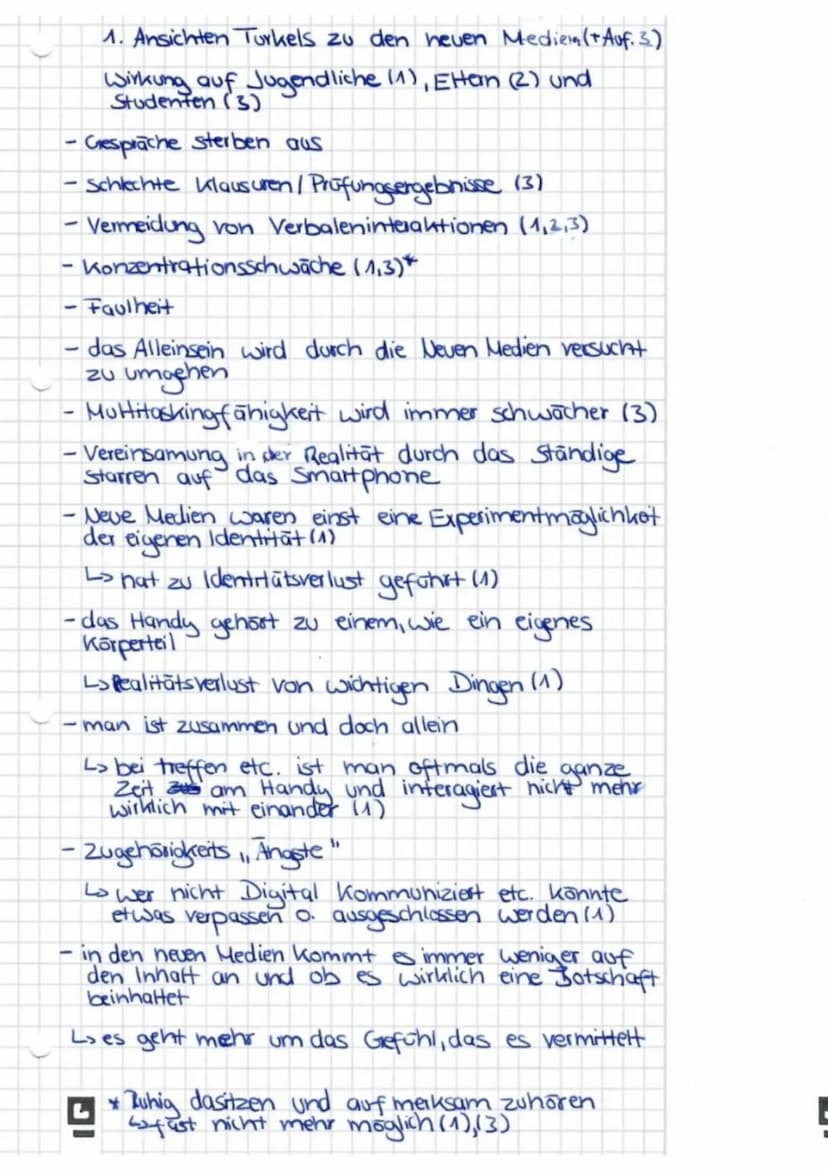 1. Ansichten Turkels zu den neuen Medien (+ Auf. 3)
Wirkung auf Jugendliche (1), Eltern (2) und
Studenten (3)
- Gespräche sterben aus
- schlechte Klausuren / Prüfungsergebnisse (3)
- Vermeidung von Verbaleninteraktionen (1,2,3)
- Konzentrationsschwäche (1,3)*
- Faulheit
- das Alleinsein wird durch die Neuen Medien versucht
zu umgehen
- Multitaskingfähigkeit wird immer schwächer (3)
- Vereinsamung in der Realität durch das Ständige
starren auf das Smartphone
- Neue Medien waren einst eine Experimentmöglichkeit
der eigenen Identität (1)
↳ hat zu Identitätsverlust geführt (1)
- das Handy gehört zu einem, wie ein eigenes
Körperteil
↳ Realitätsverlust von wichtigen Dingen (1)
- man ist zusammen und doch allein
↳ bei treffen etc. ist man oftmals die ganze
Zeit am Handy und interagiert nicht mehr
wirklich mit einander (1)
- Zugehörigkeits „Ängste"
↳ wer nicht Digital Kommuniziert etc. könnte
etwas verpassen o. ausgeschlossen werden (1)
- in den neuen Medien kommt es immer weniger auf
den Inhalt an und ob es wirklich eine Botschaft
beinhaltet
↳ es geht mehr um das Gefühl, das es vermittelt
* Ruhig dasitzen und aufmerksam zuhören
↳ fast nicht mehr möglich (1),(3)